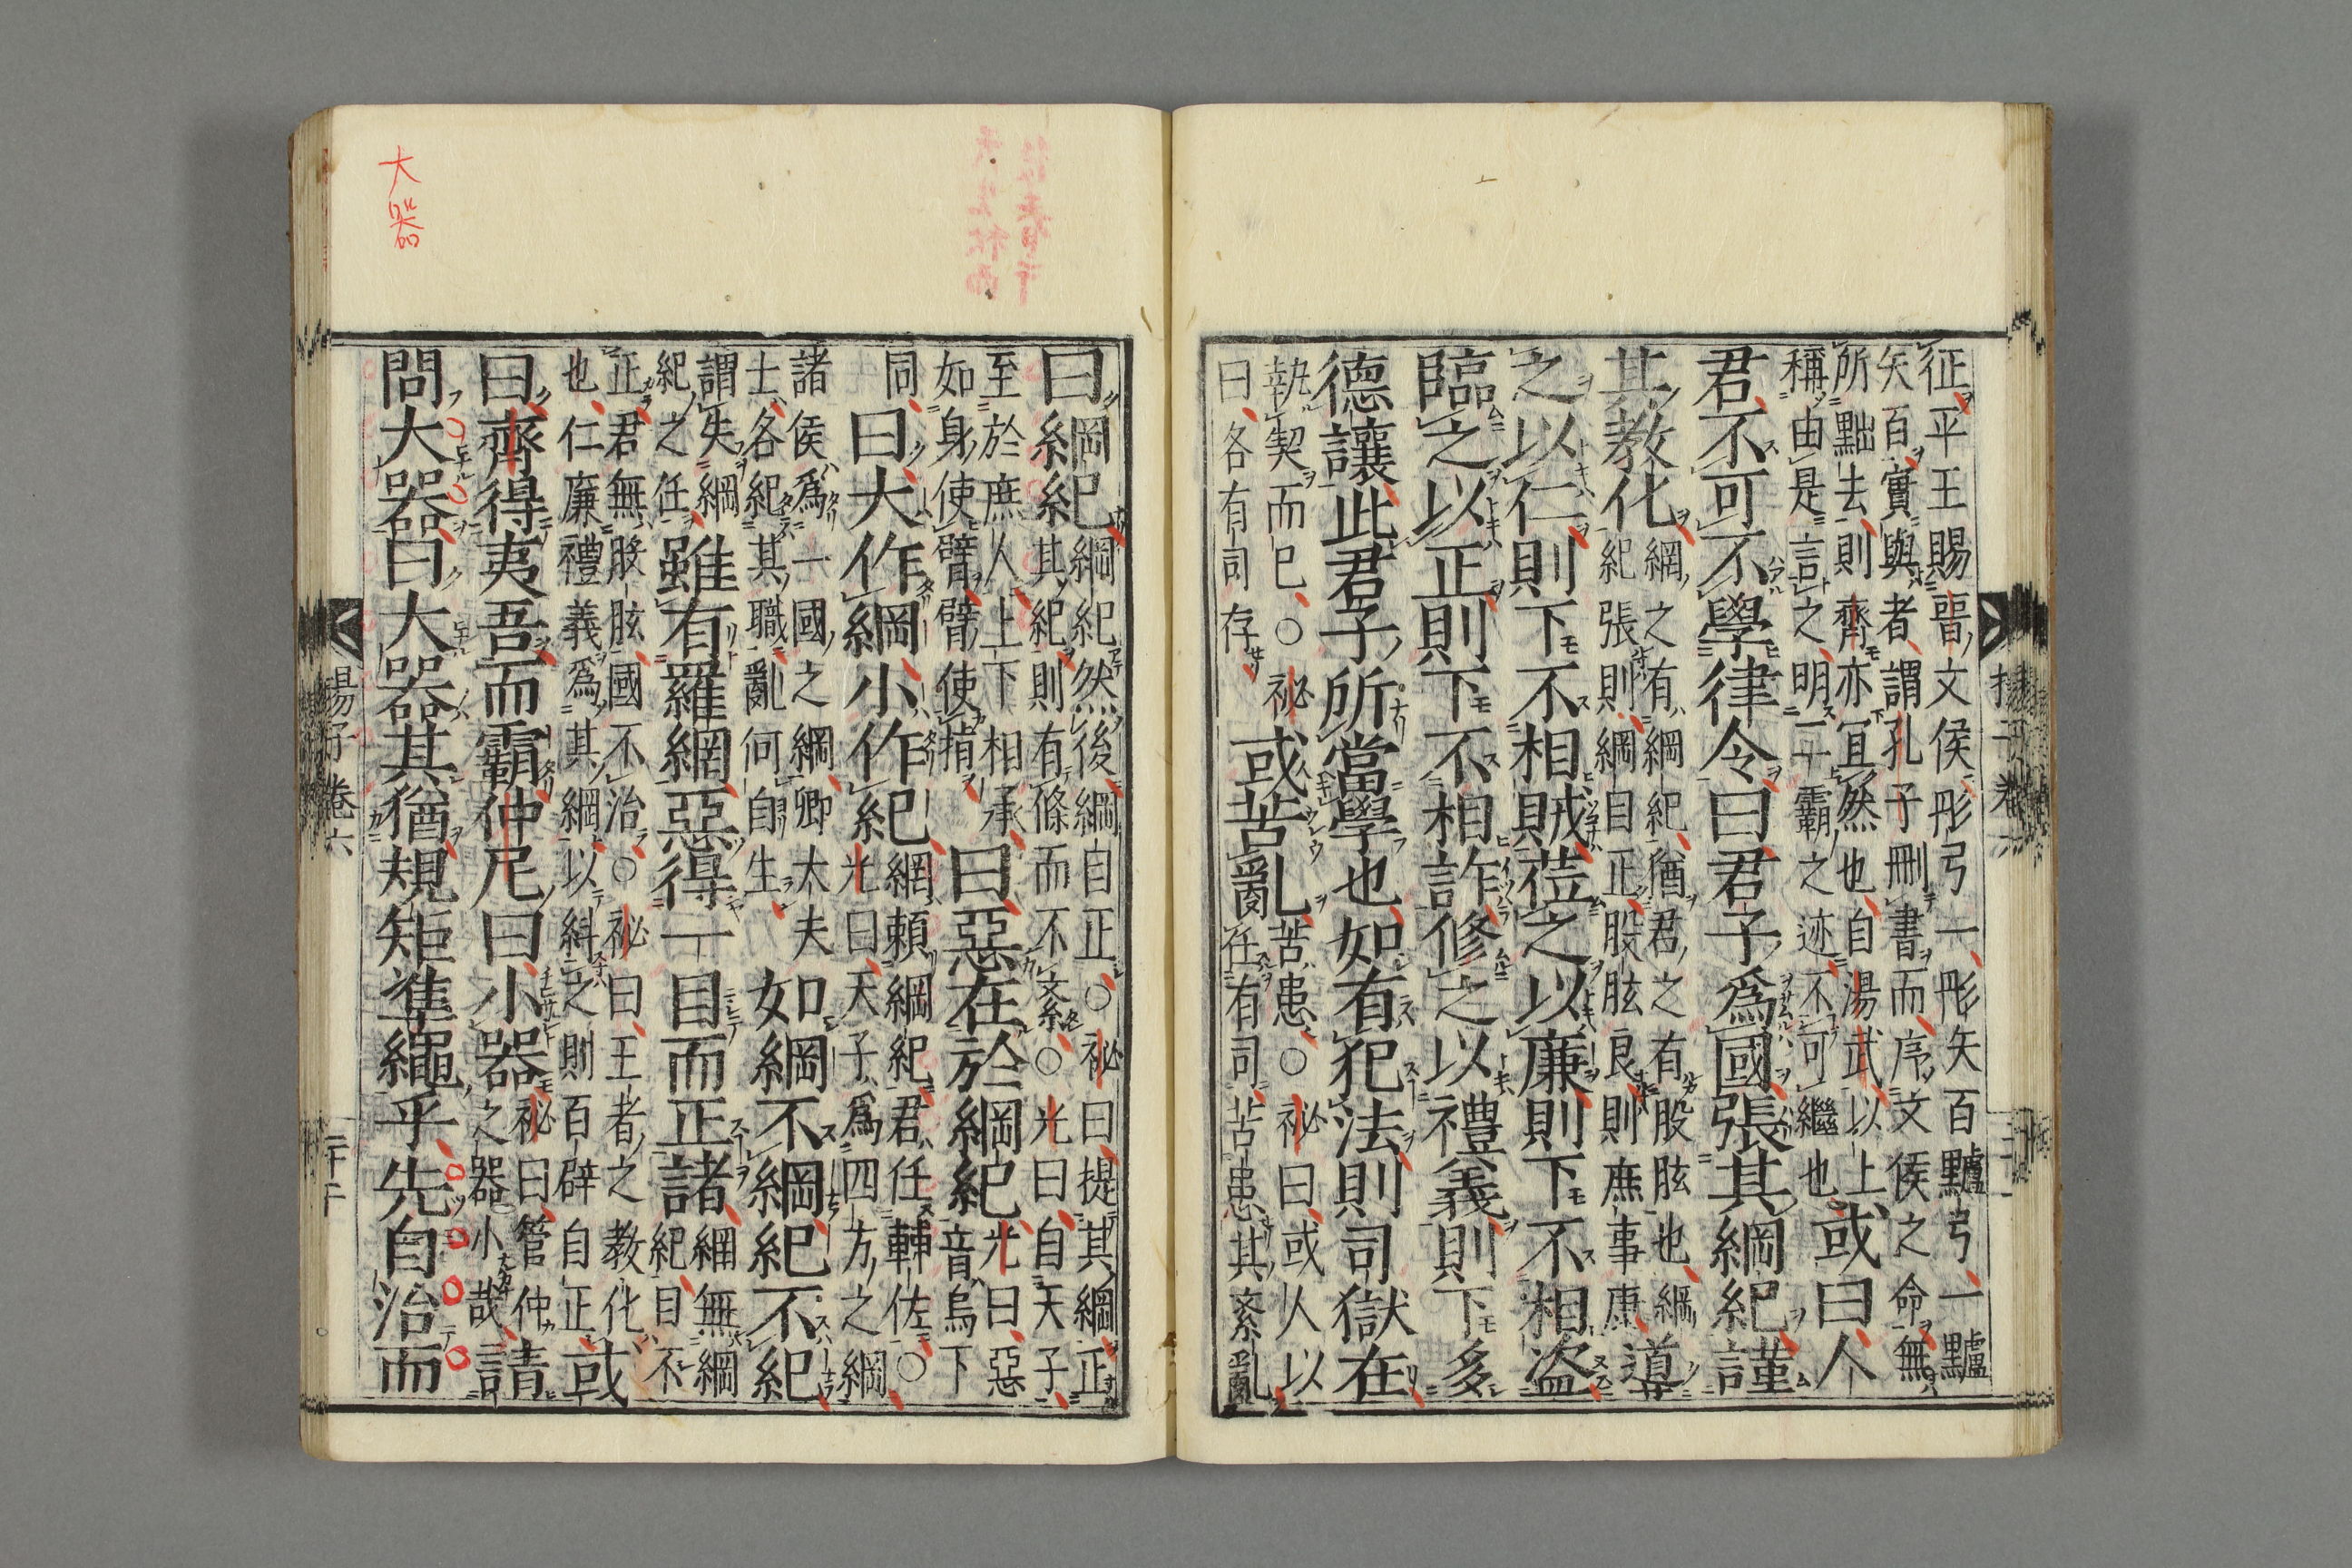 征平王賜晉文侯彤弓一彤矢百黸弓一黸
矢百實與者謂孔子刪書而序文侯之命無
所黜去則齊亦宜然也自湯武以上
稱由是言之明二霸之迹不可繼也
或曰人
君不可不學律令曰君子爲國張其綱紀謹
其教化
綱之有綱紀猶君之有股肱也綱
紀張則綱目正股肱良則庶事康
導
之以仁則下不相賊莅之以廉則下不相盜
臨之以正則下不相詐修之以禮義則下多
德讓此君子所當學也如有犯法則司獄在
執契而已○祕
曰各有司存
或苦亂
苦患○祕曰或人以
任有司苦患其紊亂
曰綱紀
綱紀然後綱自正○祕曰提其綱正
其紀則有條而不紊○光曰自天子
至於庶人上下相承
如身使臂臂使指
曰惡在於綱紀
光曰惡
音烏下
同
曰大作綱小作紀
綱頼綱紀君任輔佐○
光曰天子爲四方之綱
諸侯爲一國之綱卿大夫
士各紀其職亂何自生
如綱不綱紀不紀
謂失綱
紀之任
雖有羅網惡得一目而正諸
綱無綱
紀目不
正君無股肱國不治○祕曰王者之教化
也仁廉禮義爲其綱以糾之則百辟自正
或
曰齊得夷吾而霸仲尼曰小器
祕曰管仲
之器小哉
請
問大器曰大器其猶規矩準繩乎先自治而
大器
揚子卷六
二十一